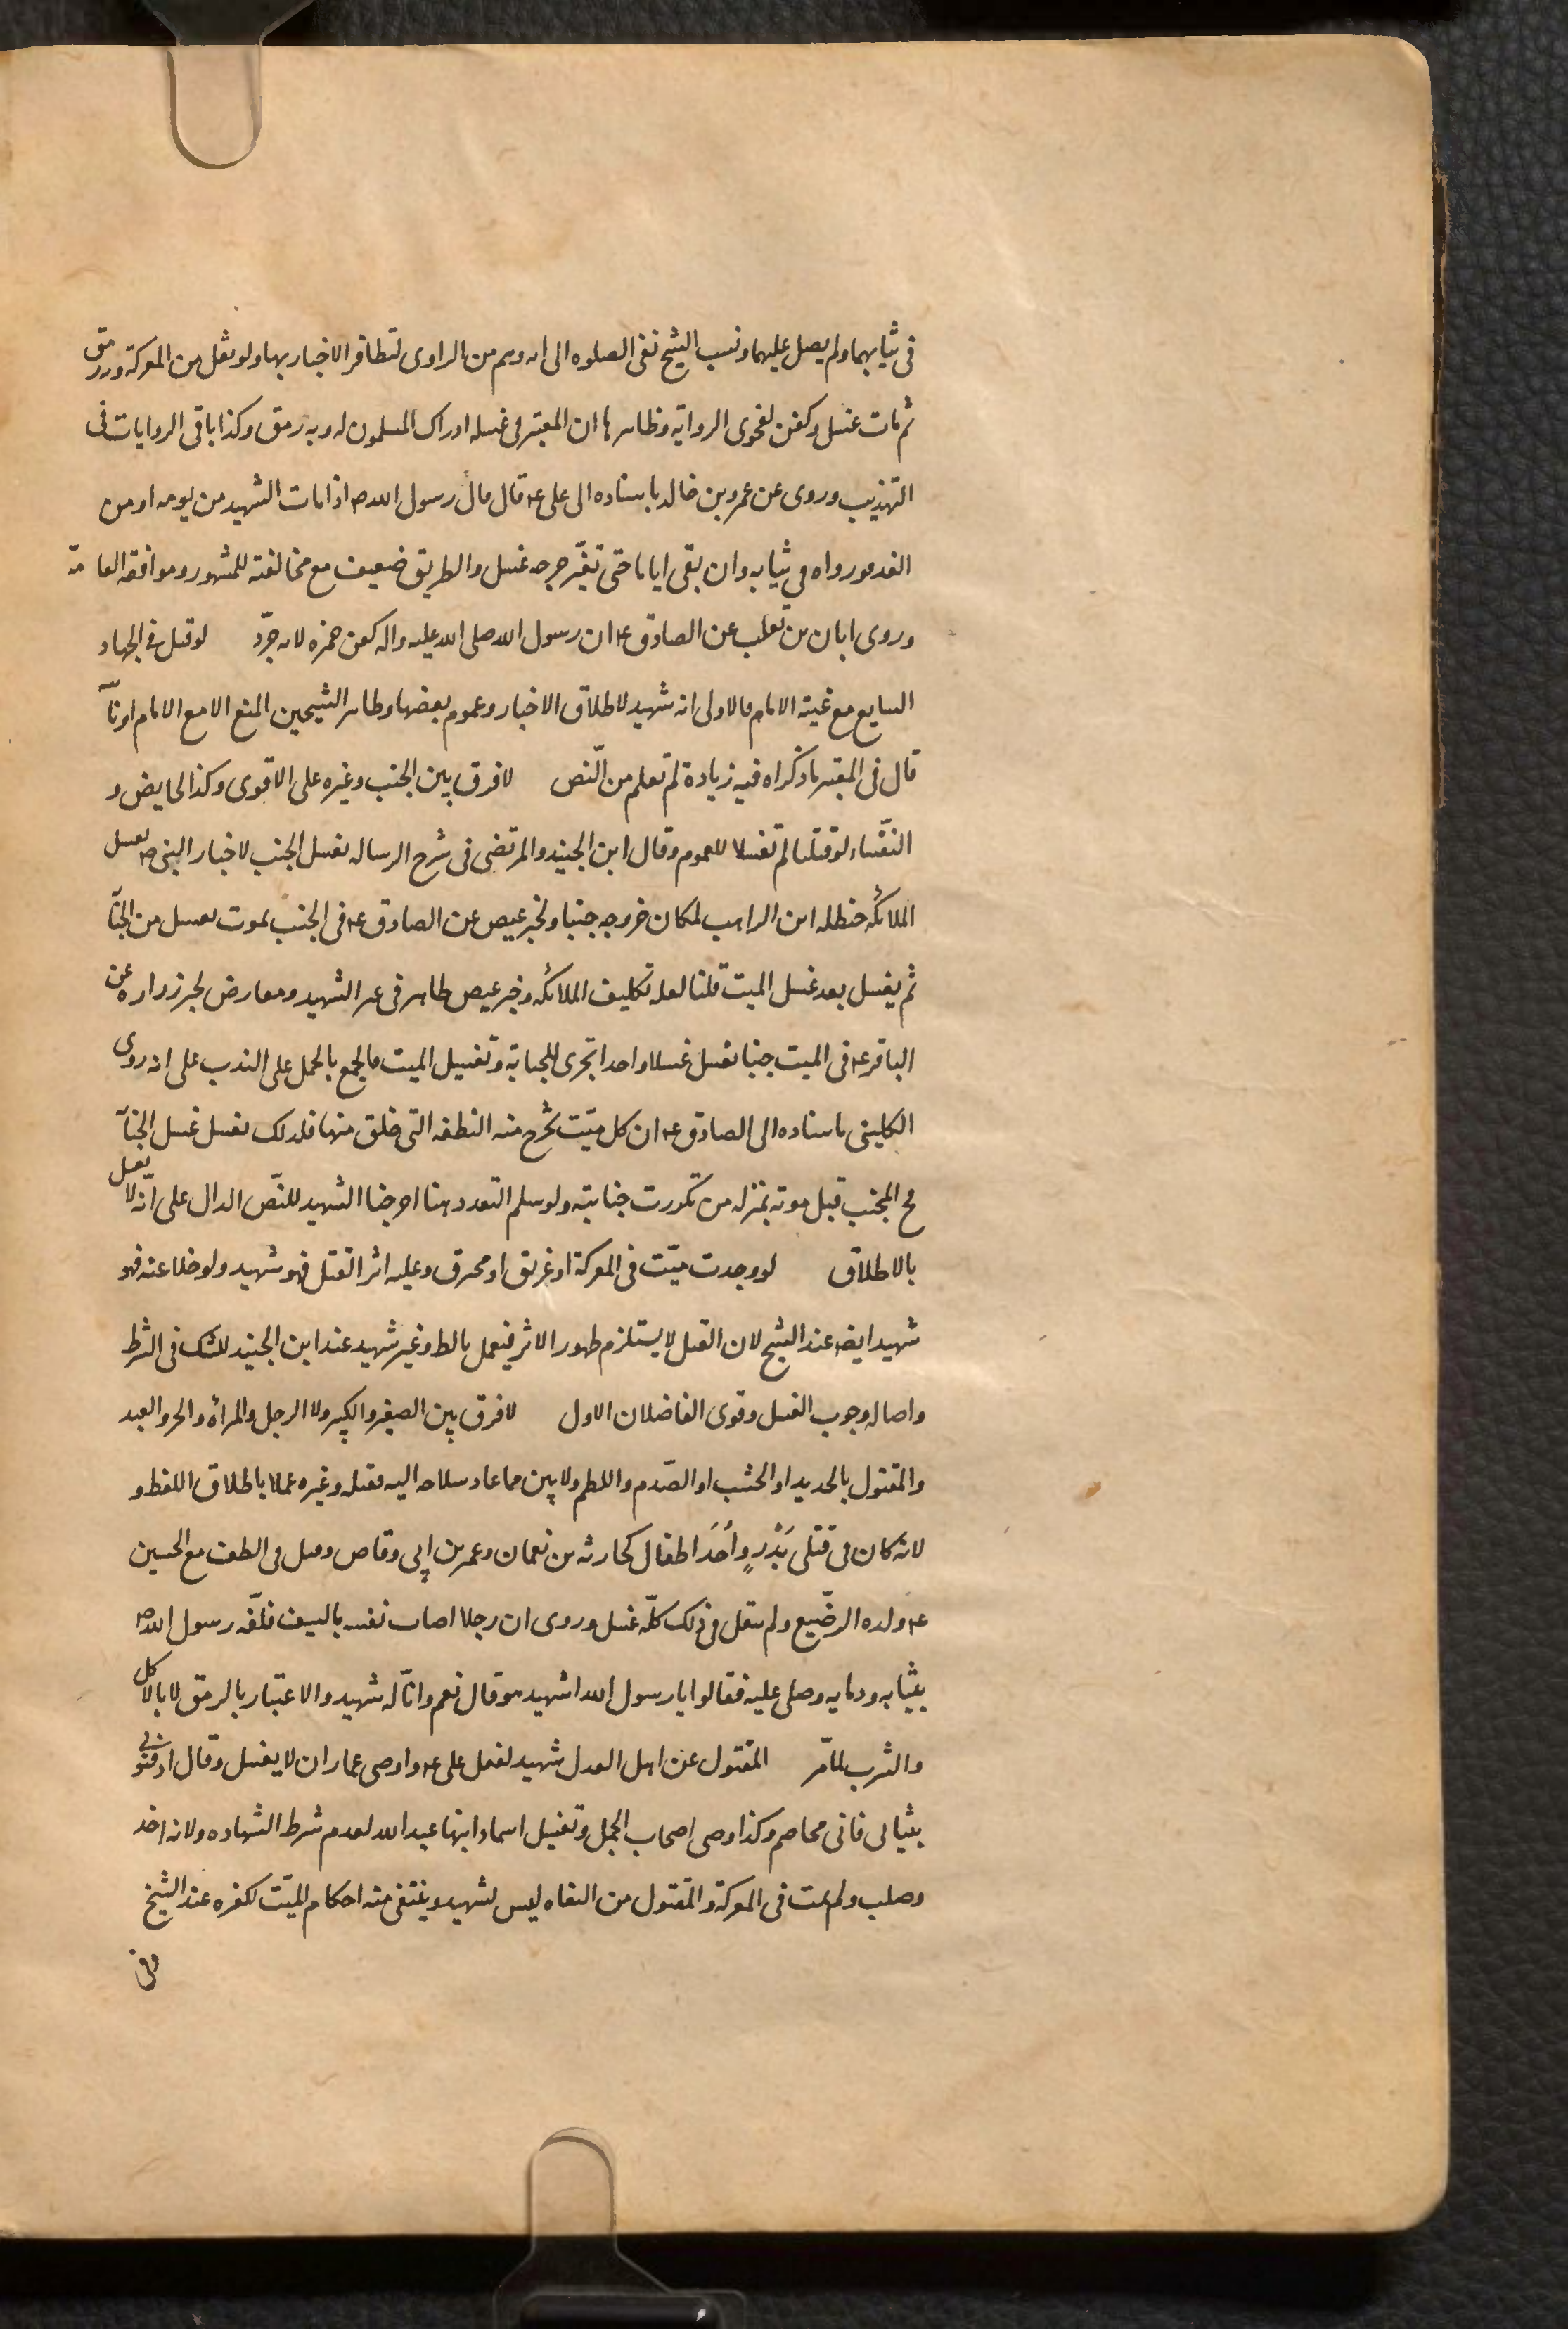 فى ثيابهما ولم يصل عليهما ونسب الشيخ نفى الصلوه الى انه وهم من الراوى لتظافر الاخبار بها ولو نقل من المعركة وبه رمق
ثم مات غسل وكفن لفحوى الرواية وظاهرها ان المعتبر فى غسله ادراك المسلمون له وبه رمق وكذا باقى الروايات فى
التهذيب وروى عن عمرو بن خالد باسناده الى على ع قال قال رسول الله ص اذا مات الشهيد من يومه او من
الغد فوروه فى ثيابه وان بقى اياما حتى تغيّر جرحه غسل والطريق ضعيف مع مخالفته للمشهور وموافقه العامّة
وروى ابان بن تغلب عن الصادق ع ان رسول الله صلى الله عليه واله كفن حمزه لانه جرّد لو قتل فى الجهاد
السايغ مع غيبة الامام فالاولى انه شهيد لاطلاق الاخبار وعموم بعضها وظاهر الشيخين المنع الا مع الامام او نائبه
قال فى المعتبر ما ذكراه فيه زيادة لم تعلم من النّص لا فرق بين الجنب وغيره على الاقوى وكذا الحايض و
النفساء لو قتلتا لم تغسلا للعموم وقال ابن الجنيد والمرتضى فى شرح الرساله يغسل الجنب لاخبار النبى ص بغسل
الملائكه حنظله ابن الراهب لمكان خروجه جنبا ولخبر عيص عن الصادق ع فى الجنب يموت يغسل من الجنابة
ثم يغسل بعد غسل الميت قلنا لعله تكليف الملائكه وخبر عيص ظاهر فى غير الشهيد ومعارض لخبر زراره عن
الباقر ع فى الميت جنبا يغسل غسلا واحدا تجرى للجنابة وتغسيل الميت فالجمع بالحمل على الندب على انه روى
الكلينى باسناده الى الصادق ع ان كل ميّت تخرج منه النطفه التى خلق منها فلذلك يغسل غسل الجنابة
فح المجنب قبل موته بمنزله من تكررت جنابته ولو سلم التعدد هنا اخرجنا الشهيد للنّص الدال على انّه لا يغسل
بالاطلاق لو وجدت ميّت فى المعركة او غريق او محترق وعليه اثر القتل فهو شهيد ولو خلا عنه فهو
شهيد ايضا عند الشيخ لان القتل لا يستلزم ظهور الاثر فيعمل بالظ وغير شهيد عند ابن الجنيد للشك فى الشرط
واصاله وجوب الغسل وقوى الفاضلان الاول لا فرق بين الصغير والكبير ولا الرجل والمراة والحر والعبد
والمقتول بالحديد او الخشب او الصّدم واللطم ولا بين ما عاد سلاحه اليه فقتله وغيره عملا باطلاق اللفظ و
لانه كان فى قتلى بَدْرٍ وأحَد اطفال كحارثه بن نعمان وعمر بن ابى وقاص وقتل فى الطف مع الحسين
ع ولده الرضّيع ولم ينقل فى ذلك كلّه غسل وروى ان رجلا اصاب نفسه بالسيف فلفّه رسول الله ص
بثيابه ودمايه وصلى عليه فقالوا يا رسول الله اشهيد هو قال نعم وانا له شهيد والاعتبار بالرمق لا بالاكل
والشرب للامر المقتول عن اهل العدل شهيد لفعل على ع واوصى عمار ان لا يغسل وقال ادفنونى
بثيابى فانى مخاصم وكذا وصى اصحاب الجمل وتغسيل اسماء ابنها عبد الله لعدم شرط الشهاده ولانه اخذ
وصلب ولم يمت فى المعركة والمقتول من البغاه ليس بشهيد وينتفى منه احكام الميّت لكفره عند الشيخ